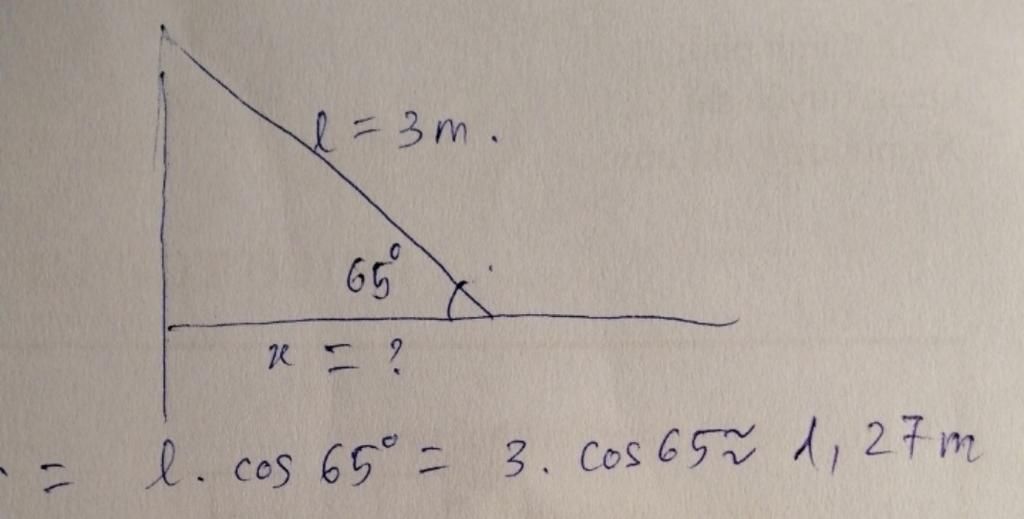 l = 3m.
65°
x = ?
= l. cos 65° = 3. cos 65 ≈ 1,27m